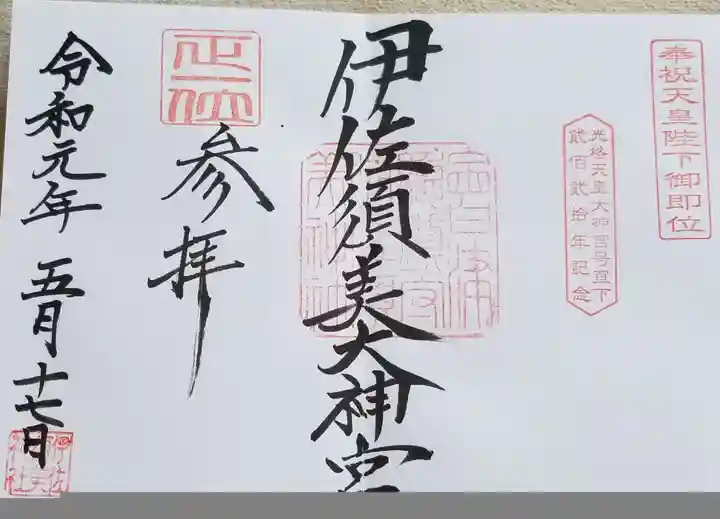 奉祝天皇陛下御即位
光格天皇大神宮号宣下
貳佰貳拾年記念
伊佐須美大神宮
正一位
参拝
令和元年五月十七日